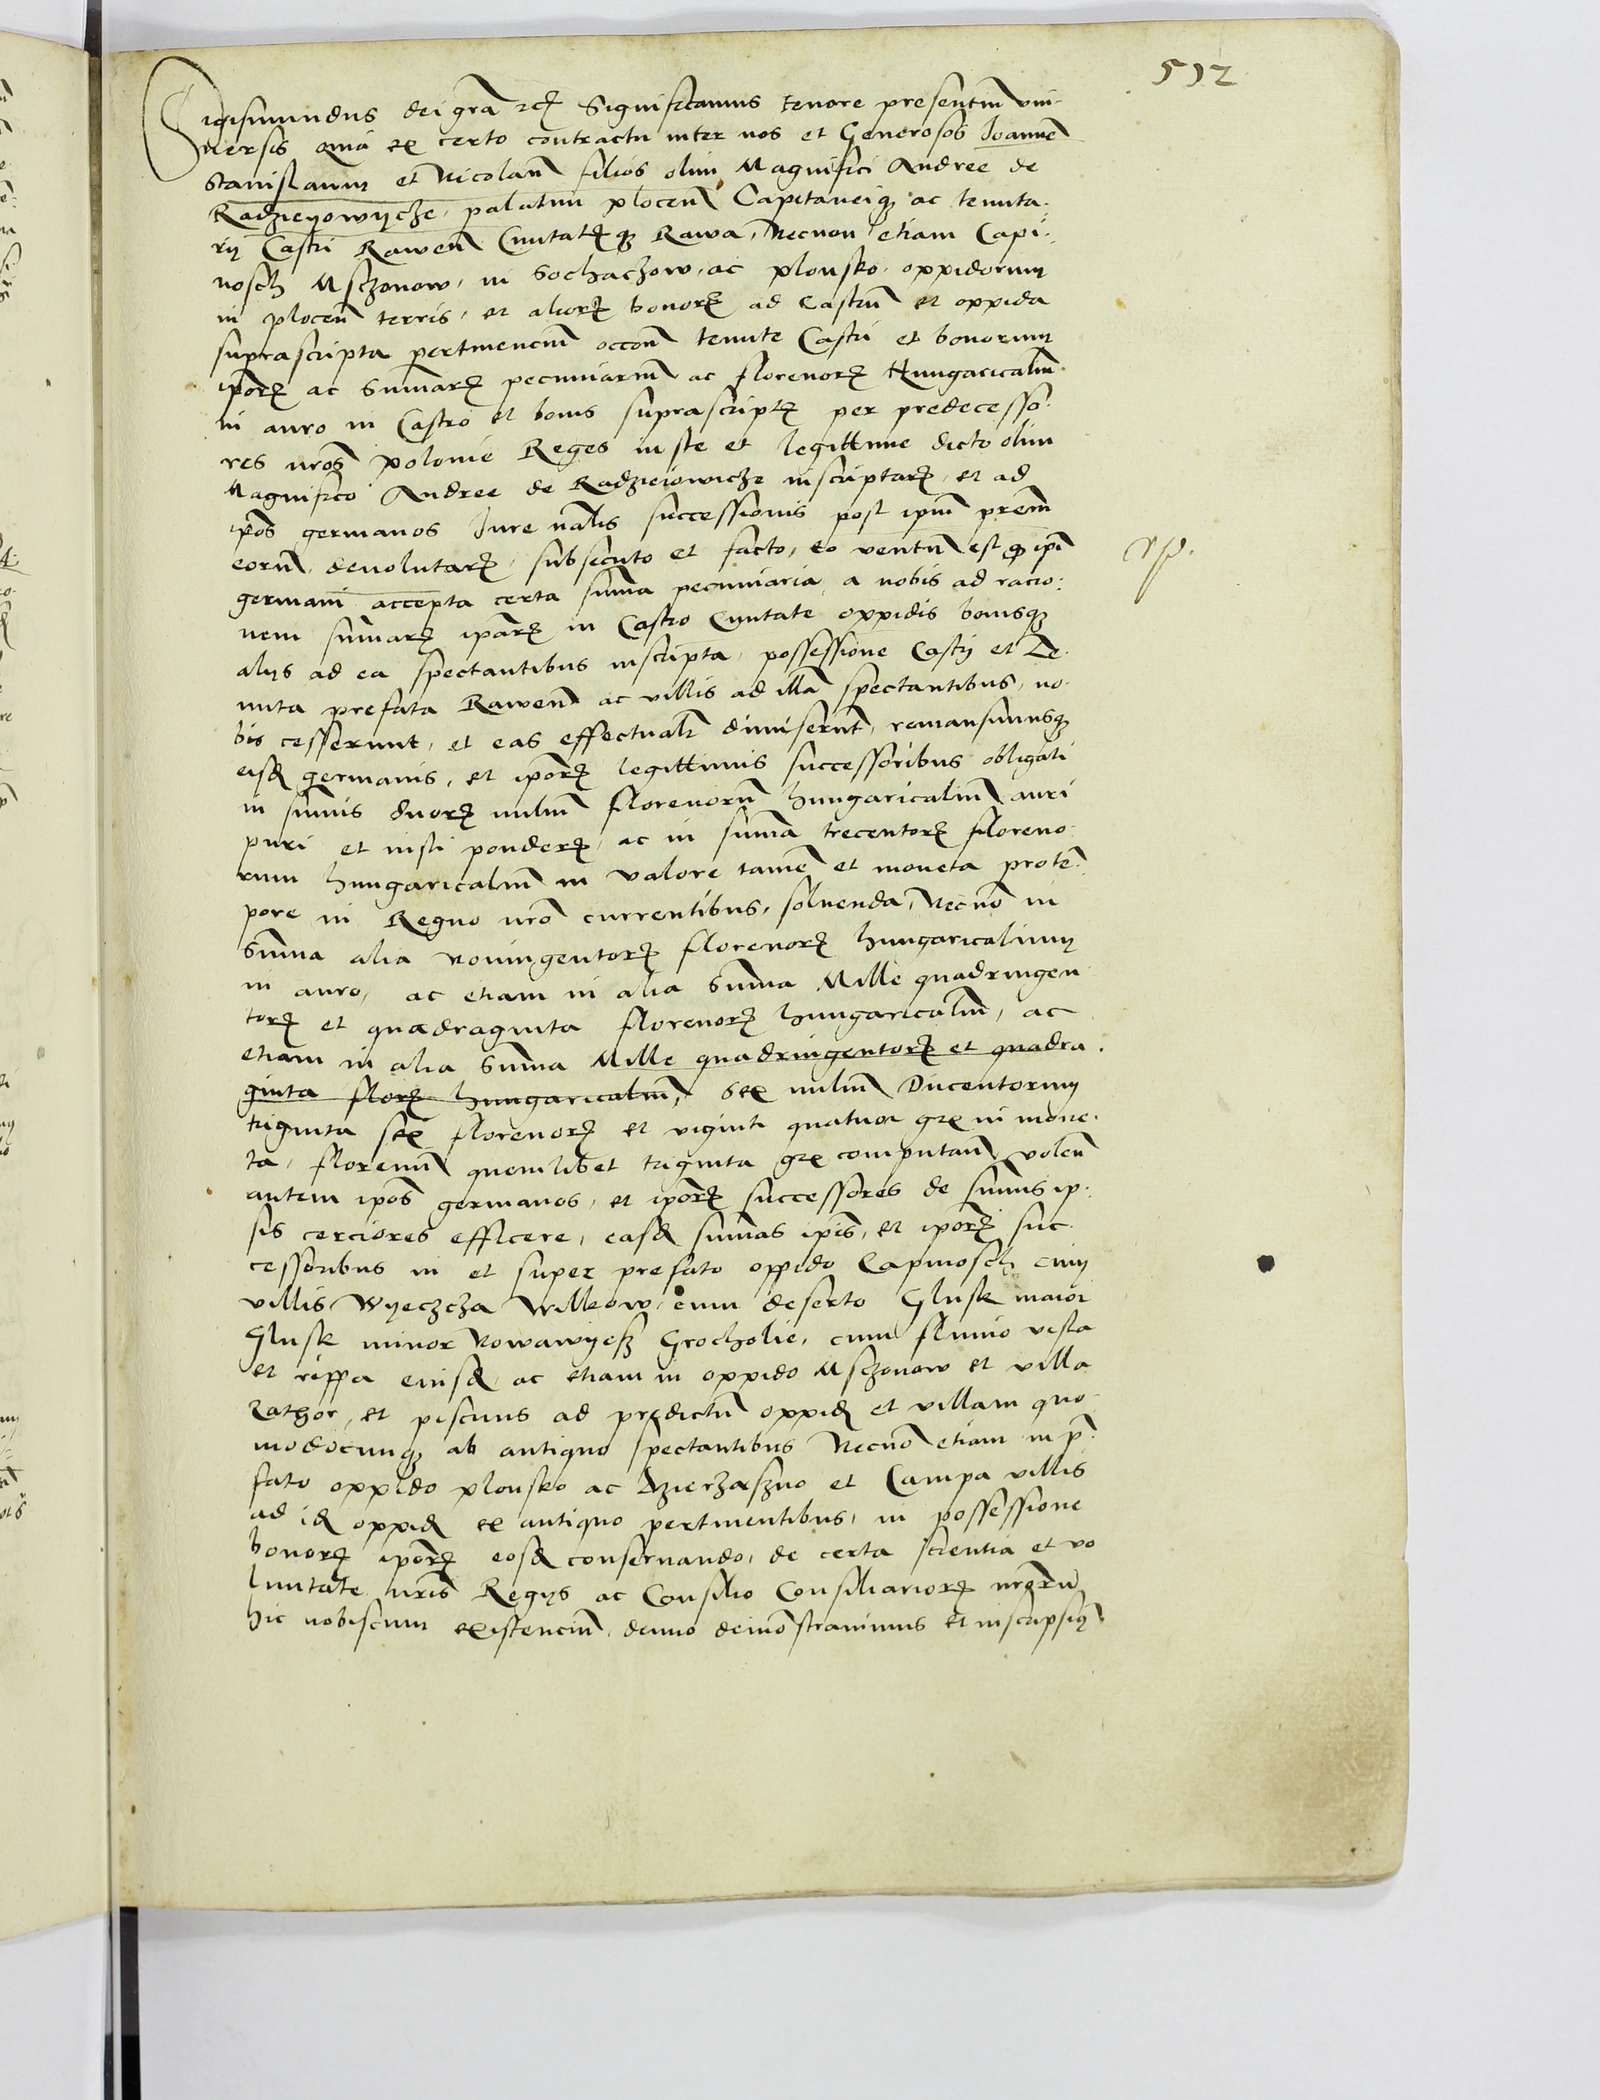 512
Sigismundus dei gra̅ rex Significamus tenore presentiu̅ vni-
uersis Quia ex certo contractu inter nos et Generosos Joanne̅
Stanislaum et Nicolau̅ filios olim Magnifici Andree de
Radzieyowycze, palatini plocen̅ Capitaneiqꝫ ac tenuta-
rij Castri Rawen̅ Ciuitatꝭqꝫ Rawa, Necnon etiam Capi-
nosch Msczonow, in Sochaczow, ac plonsko, oppidorum
in plocen̅ terris, et alioꝝ bonoꝝ ad Castru̅ et oppida
suprascripta pertinenciu̅ occon̅ tenute Castri et bonorum
ip̅oꝝ ac Summaꝝ pecuniariu̅ ac florenoꝝ Hungaricaliu̅
in auro in Castro et bonis suprascriptꝭ per predecesso-
res nr̅os polonie Reges iuste et legittime dicto olim
Magnifico Andree de Radzieiowicze inscriptaꝝ, et ad
ip̅os germanos Jure nal̅is successionis post ip̅m pr̅em
eoru̅, deuolutaꝝ, subsecuto et facto, eo ventu̅ est ꝙ ip̅i
germani accepta certa suma̅ pecuniaria a nobis ad racio-
nem summaꝝ ip̅aꝝ in Castro Ciuitate oppidis bonisqꝫ
alijs ad ea spectantibus inscripta, possessione Castri et Te-
nuta prefata Rawen̅ ac villis ad illa̅ spectantibus, no-
bis cesserunt, et eas effectualr̅ dimiserut̅, remansimusqꝫ
eisdꝫ germanis, et ip̅oꝝ legittimis successoribus obligati
in sumis duoꝝ miliu̅ florenoru̅ hungaricaliu̅ auri
puri et iusti ponderꝭ, ac in suma̅ trecentoꝝ floreno-
rum hungaricaliu̅ in valore tame̅ et moneta pro te̅-
pore in Regno nr̅o currentibus, soluenda, Necno̅ in
Suma̅ alia Noningentoꝝ florenoꝝ hungaricalium
in auro, ac etiam in alia Suma̅ Mille quadringen-
toꝝ et quadraginta florenoꝝ hungaricaliu̅, ac
etiam in alia Suma̅ Mille quadringentoꝝ et quadra-
ginta floꝝ hungaricaliu̅, Sex miliu̅ Ducentorum
triginta sex florenoꝝ et viginti quatuor grꝭ in mone-
ta, florenu̅ quemlibet triginta grꝭ computan̅, volen̅
autem ip̅os germanos, et ip̅oꝝ successores de sumis ip-
sis cerciores efficere, easdꝫ sumas ip̅is, et ip̅oꝝ suc-
cessoribus in et super prefato oppido Capinosch cum
villis, Wyeczcza Wilkow, cum deserto Glusk maior
Glusk minor Nowawyesz Grocholie, cum fluuio visla
et rippa eiusdꝫ, ac etiam in oppido Msczonow et villa
Zathor, et piscinis ad predictu̅ oppidꝫ et villam quo-
modocunqꝫ ab antiquo spectantibus Necno̅ etiam in p̅-
fato oppido plonsko ac Dzierzaszno et Campa villis
ad idꝫ oppidꝫ ex antiquo pertinentibus, in possessione
bonoꝝ ip̅oꝝ eosdꝫ conseruando, de certa scientia et vo
luntate nr̅is Regijs ac Consilio Consiliarioꝝ nr̅oru̅
hic nobiscum existenciu̅, denuo demo̅strauimus et inscripsimꝰ